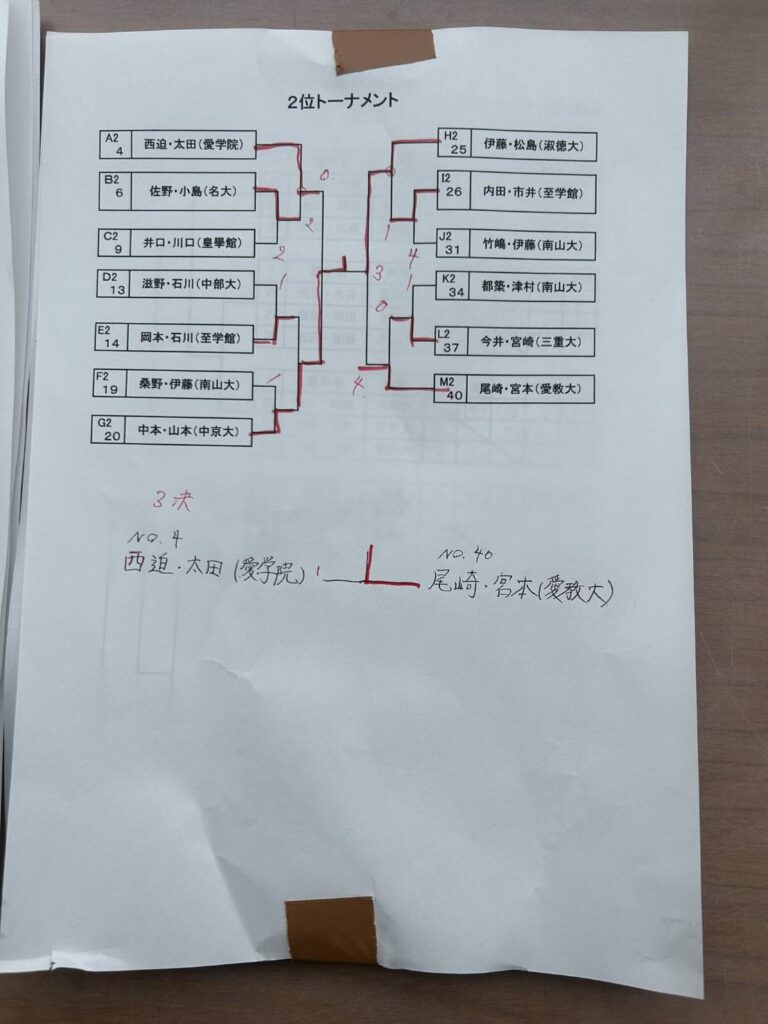 2位トーナメント
A2 4 西迫・太田(愛学院)
B2 6 佐野・小島(名大)
C2 9 井口・川口(皇學館)
D2 13 滋野・石川(中部大)
E2 14 岡本・石川(至学館)
F2 19 桑野・伊藤(南山大)
G2 20 中本・山本(中京大)
0
2
2
1
1
3
H2 25 伊藤・松島(淑徳大)
I2 26 内田・市井(至学館)
J2 31 竹嶋・伊藤(南山大)
K2 34 都築・津村(南山大)
L2 37 今井・宮崎(三重大)
M2 40 尾崎・宮本(愛教大)
1
4
1
0
4
3決
NO. 4
西迫・太田(愛学院) 1
NO. 40
尾崎・宮本(愛教大)